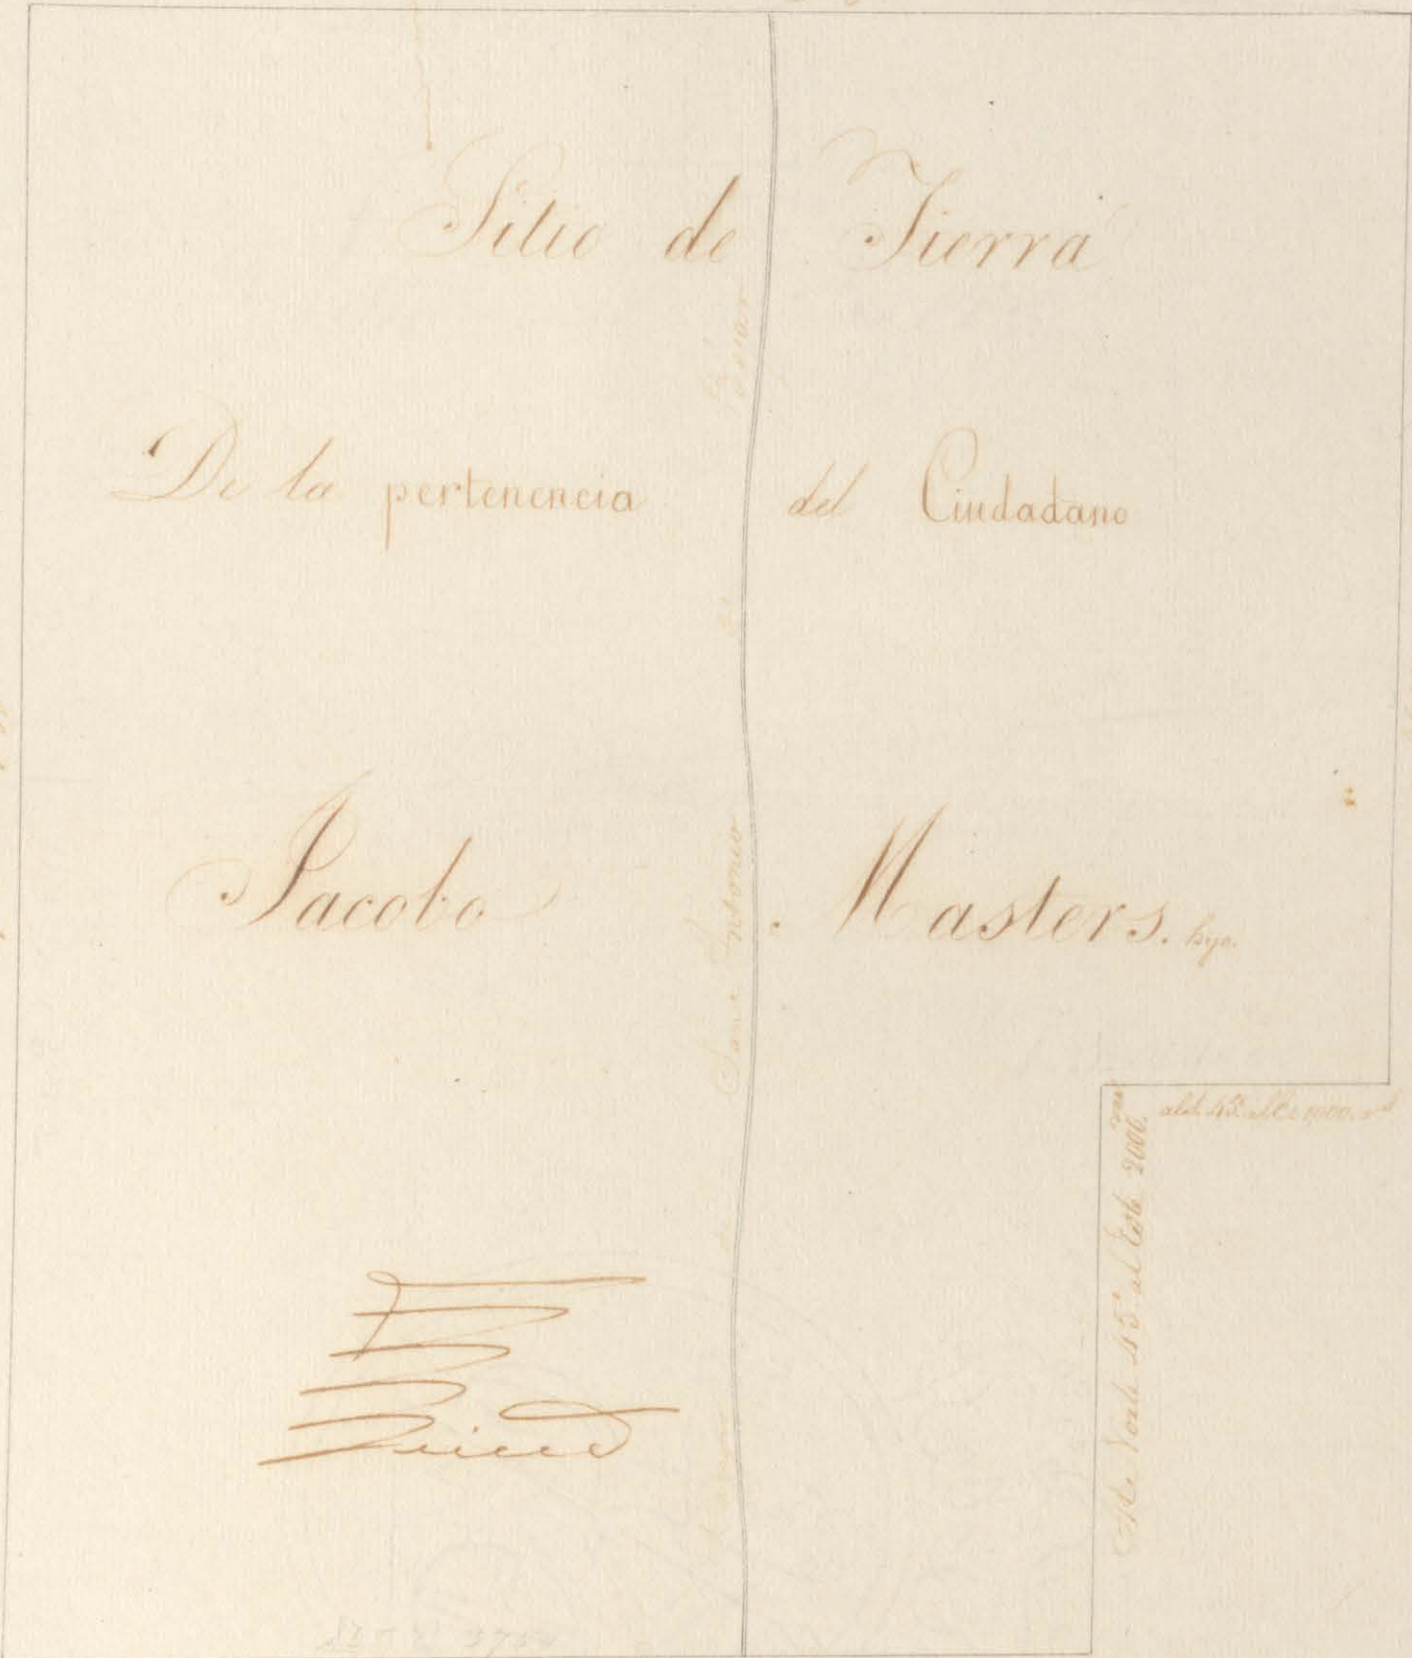 Sitio de Tierra
De la pertenencia del Ciudadano
Jacobo Masters. hijo.
San Antonio
Bexar
al Norte 45° al Este 2000. var
al 45° al 1000. vs
3750